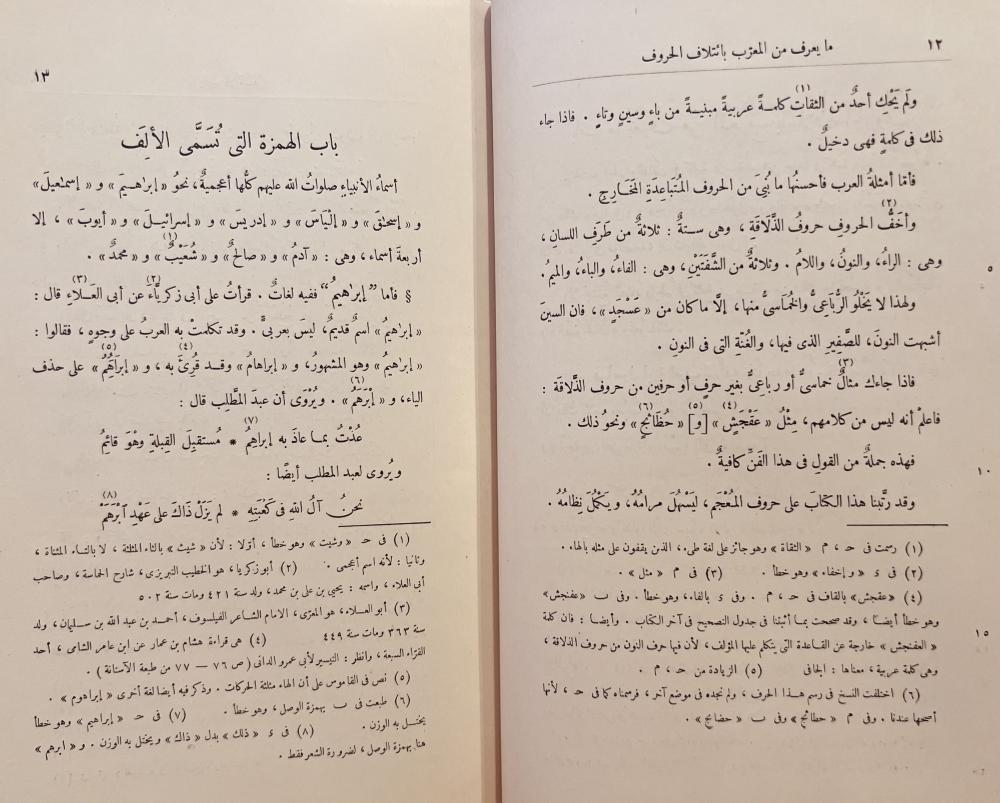 ١٢
ما يعرف من المعرّب بائتلاف الحروف
ولَم يَحْكِ أحدٌ من الثقاتِ (١) كلمــةً عربيةً مبنيــةً من باءٍ وسينٍ وتاءٍ . فاذا جاء
ذلك فى كلمةٍ فهى دخيلٌ .
فأمّا أمثلةُ العرب فأحسنُها ما بُنِىَ من الحروف المُتَباعِدَةِ المَخَارِجِ .
وأخَفُّ (٢) الحروفِ حروفُ الذَّلَاقَةِ ، وهى ســتةٌ : ثلاثةٌ من طَرَفِ اللسان ،
وهى : الراءُ، والنونُ، واللامُ . وثلاثةٌ من الشَّفَتَيْنِ، وهى : الفاءُ، والباءُ، والميمُ .
ولهذا لا يَخْلُو الرُّبَاعِىُّ والخُمَاسىُّ منها، إلَّا ماكان من « عَسْجَدٍ »، فان السينَ
أشبهت النونَ، للصَّفِيرِ الذى فيها، والغُنَّةِ التى فى النونِ .
فاذا جاءك مثالٌ (٣) خماسىٌّ أو رباعىٌّ بغير حرفٍ أو حرفين من حروف الذَّلاقة :
فاعلمْ أنه ليس من كلامهم، مِثْلُ « عَفْجَشٍ (٤) » [و] (٥) « حُظَائِجٍ (٦) » ونحوُ ذلك .
فهذه جملةٌ من القولِ فى هذا الفَنِّ كافيةٌ .
وقد رتَّبنا هذا الكتابَ على حروف المُعْجَمِ، لِيَسْهُلَ مرامُهُ، ويَكْمُلَ نِظامُهُ .
٥
١٠
١٥
(١) رسمت فى حـ ، م « الثقاة » وهو جائز على لغة طىء، الذين يقفون على مثله بالهاء .
(٢) فى ء « وإخفاء » وهو خطأ . (٣) فى م « مثل » .
(٤) «عقجش» بالقاف فى حـ ، م . وفى ء بالفاء، وهو خطأ . وفى ب «عفنجش»
وهو خطأ أيضا ، وقد صححت بما أثبتنا فى جدول التصحيح فى آخر الكتاب . وأيضا : فان كلمة
« العفنجش » خارجة عن القاعدة التى يتكلم عليها المؤلف، لأن فيها حرف النون من حروف الذلاقة ،
وهى كلمة عربية، معناها : الجافى (٥) الزيادة من حـ ، م .
(٦) اختلفت النسخ فى رسم هــذا الحرف ، ولم نجده فى موضع آخر، فرسمناه كما فى حـ ، لأنها
أصحها عندنا . وفى م « حطائج » وفى ب « حضائج » .
١٣
باب الهمزة التى تُسَمَّى الألِفَ
أسماءُ الأنبياءِ صلواتُ الله عليهم كلُّها أعجميةٌ، نحوُ « إبراهــيمَ » و « إسمـٰعيلَ »
و « إسحـٰقَ » و « إلْيَاسَ » و « إدريسَ » و « إسرائيــلَ » و « أيوبَ » ، إلا
أربعةَ أسماء، وهى : « آدمُ » و « صالحٌ » و « شُعَيْبٌ (١) » و « محمدٌ » .
§ فأما ”إبراهيمُ“ ففيه لغاتٌ . قرأتُ على أبى زكريَّاءَ (٢) عن أبى العَــلَاءِ (٣) قال :
« إبرٰهيمُ » اسمٌ قديمٌ، ليسَ بعربىٍّ . وقد تكلمتْ به العربُ على وجوهٍ ، فقالوا :
« إبرٰهيمُ » وهو المشهورُ، و « إبراهامُ » وقــد قُرِئَ (٤) به ، و « إبراهَُِمُ (٥) » على حذف
الياء، و « إبْرَهَمُ (٦) » . ويُرْوَى أن عبدَ المطَّلبِ قال :
عُذْتُ بمـا عاذَ به إبراهِمُ (٧) * مُستقبِلَ القِبلةِ وهْوَ قائِمُ
ويُروى لعبد المطلب أيضًا :
نحنُ آلُ اللهِ فى كَعْبَتِهِ * لم يَزَلْ ذَاكَ على عَهْدِ ٱبْرَهَمْ (٨)
(١) فى حـ « وشيت » وهو خطأ ، أوّلا : لأن « شيث » بالثاء المثلثة ، لا بالتــاء المثناة ،
وثانيا : لأنه اسم أعجمى . (٢) أبو زكريا، هو الخطيب التبريزى، شارح الحماسة، وصاحب
أبى العلاء ، واسمه : يحيى بن على بن محمد، ولد سنة ٤٢١ ومات سنة ٥٠٢
(٣) أبو العــلاء، هو المعرّى، الامام الشاعر الفيلسوف، أحمــد بن عبد الله بن سليمان، ولد
سنة ٣٦٣ ومات سنة ٤٤٩ (٤) هى قراءة هشام بن عمار عن ابن عامر الشامى ، أحد
القرّاء السبعة، وانظر : التيسير لأبى عمرو الدانى ( ص ٧٦ — ٧٧ من طبعة الآستانة ) .
(٥) نص فى القاموس على أن الهاء مثلثة الحركات . وذكر فيه أيضا لغة أخرى « إبراهوم » .
(٦) طبعت فى ب بهمزة الوصل، وهو خطأ . (٧) فى حـ « إبراهيم » وهو خطأ
يختــل به الوزن . (٨) فى ء « ذلك » بدل « ذاك » ويختل به الوزن . و « ابرهم »
هنا بهمزة الوصل، لضرورة الشعر فقط .